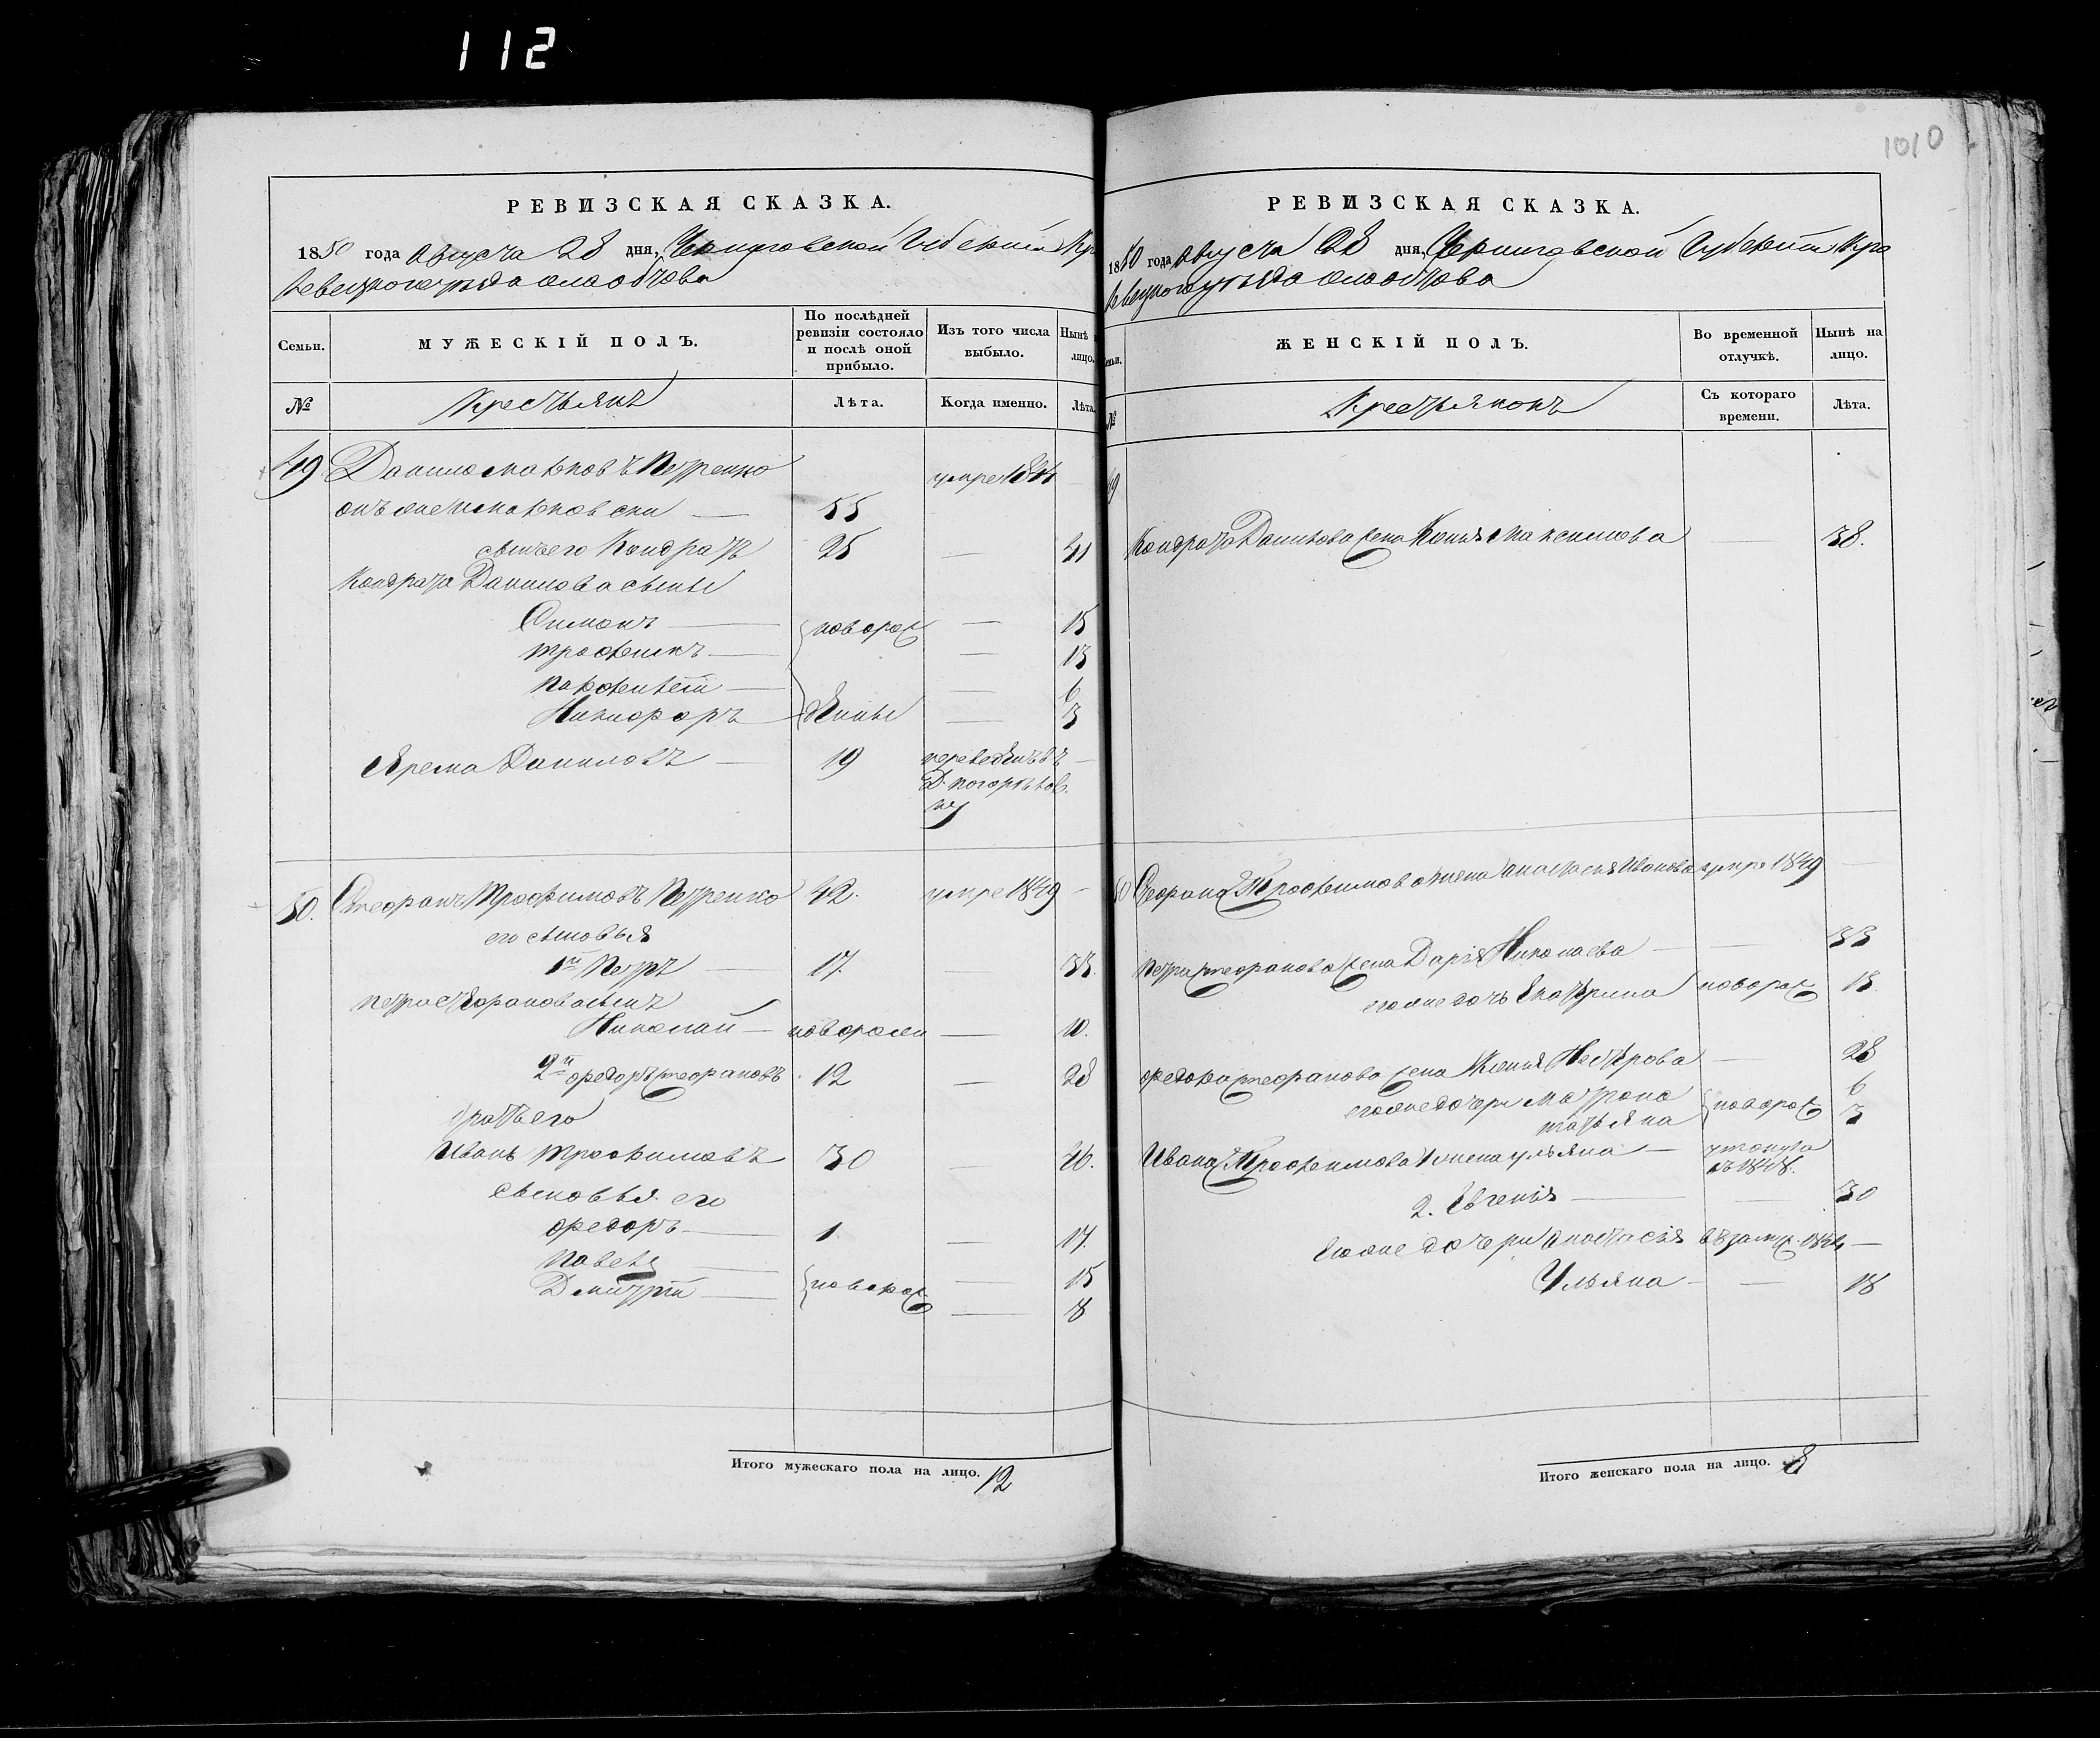 112
1010
РЕВИЗСКАЯ СКАЗКА.
1850 года Августа 28 дня, Черниговской Губернии Кро
левецкого уезда села Обтова
Семьи.
МУЖЕСКІЙ ПОЛЪ.
По послѣдней ревизіи состояло и послѣ оной прибыло.
Изъ того числа выбыло.
Нынѣ лицо.
№
Крестьянъ
Лѣта.
Когда именно.
Лѣта.
49 Данило Марковъ Петренко умре
онъ же Марков 55
сынъ его Кондратъ 25 — 41
Кондрата Данилова сыны
Симонъ — новорож — 15
Трофимъ — — 13
Парфентій — — 6
Никифоръ — дѣнны — 3
Ярема Даниловъ — 19 переведенъ въ —
Д.
50. Стефанъ Трофимовъ Петренко 42. умре 1849 —
его сыновья
1й Петръ — 17. — 33.
Петра Стефанова сынъ
Николай — новорожен — 10.
2й Федоръ Стефановъ 12 — 28
братъ его
Иванъ Трофимовъ 30 — 46.
сыновья его
Федоръ — 1 — 17.
Павелъ — — 15
Дмитрій — новорож — 8
Итого мужескаго пола на лицо. 12
РЕВИЗСКАЯ СКАЗКА.
1850 года Августа 28 дня, Черниговской Губерніи Кро
левецкого уезда села Обтова
Семьи.
ЖЕНСКІЙ ПОЛЪ.
Во временной отлучкѣ.
Нынѣ на лицо.
№
Крестьянокъ
Съ котораго времени.
Лѣта.
49
Кондрата Данилова жена Максимова — 38.
50 Стефана Трофимова жена Анастасія Иванова умре 1849 —
Петра Стефанова жена Дарія Николаева — — 33
его же дочь Екатерина новорож 13.
Федора Стефанова жена Ксенія Нестерова — 28
его же дочери Матрона новорож 6
татьяна 3
Ивана Трофимова 1 жена ульяна — утонула
въ 1848.
2. Евгенія — — 30
Его же дочери Анастасія въ замуж. —
Ульяна — — 18
Итого женскаго пола на лицо. 8